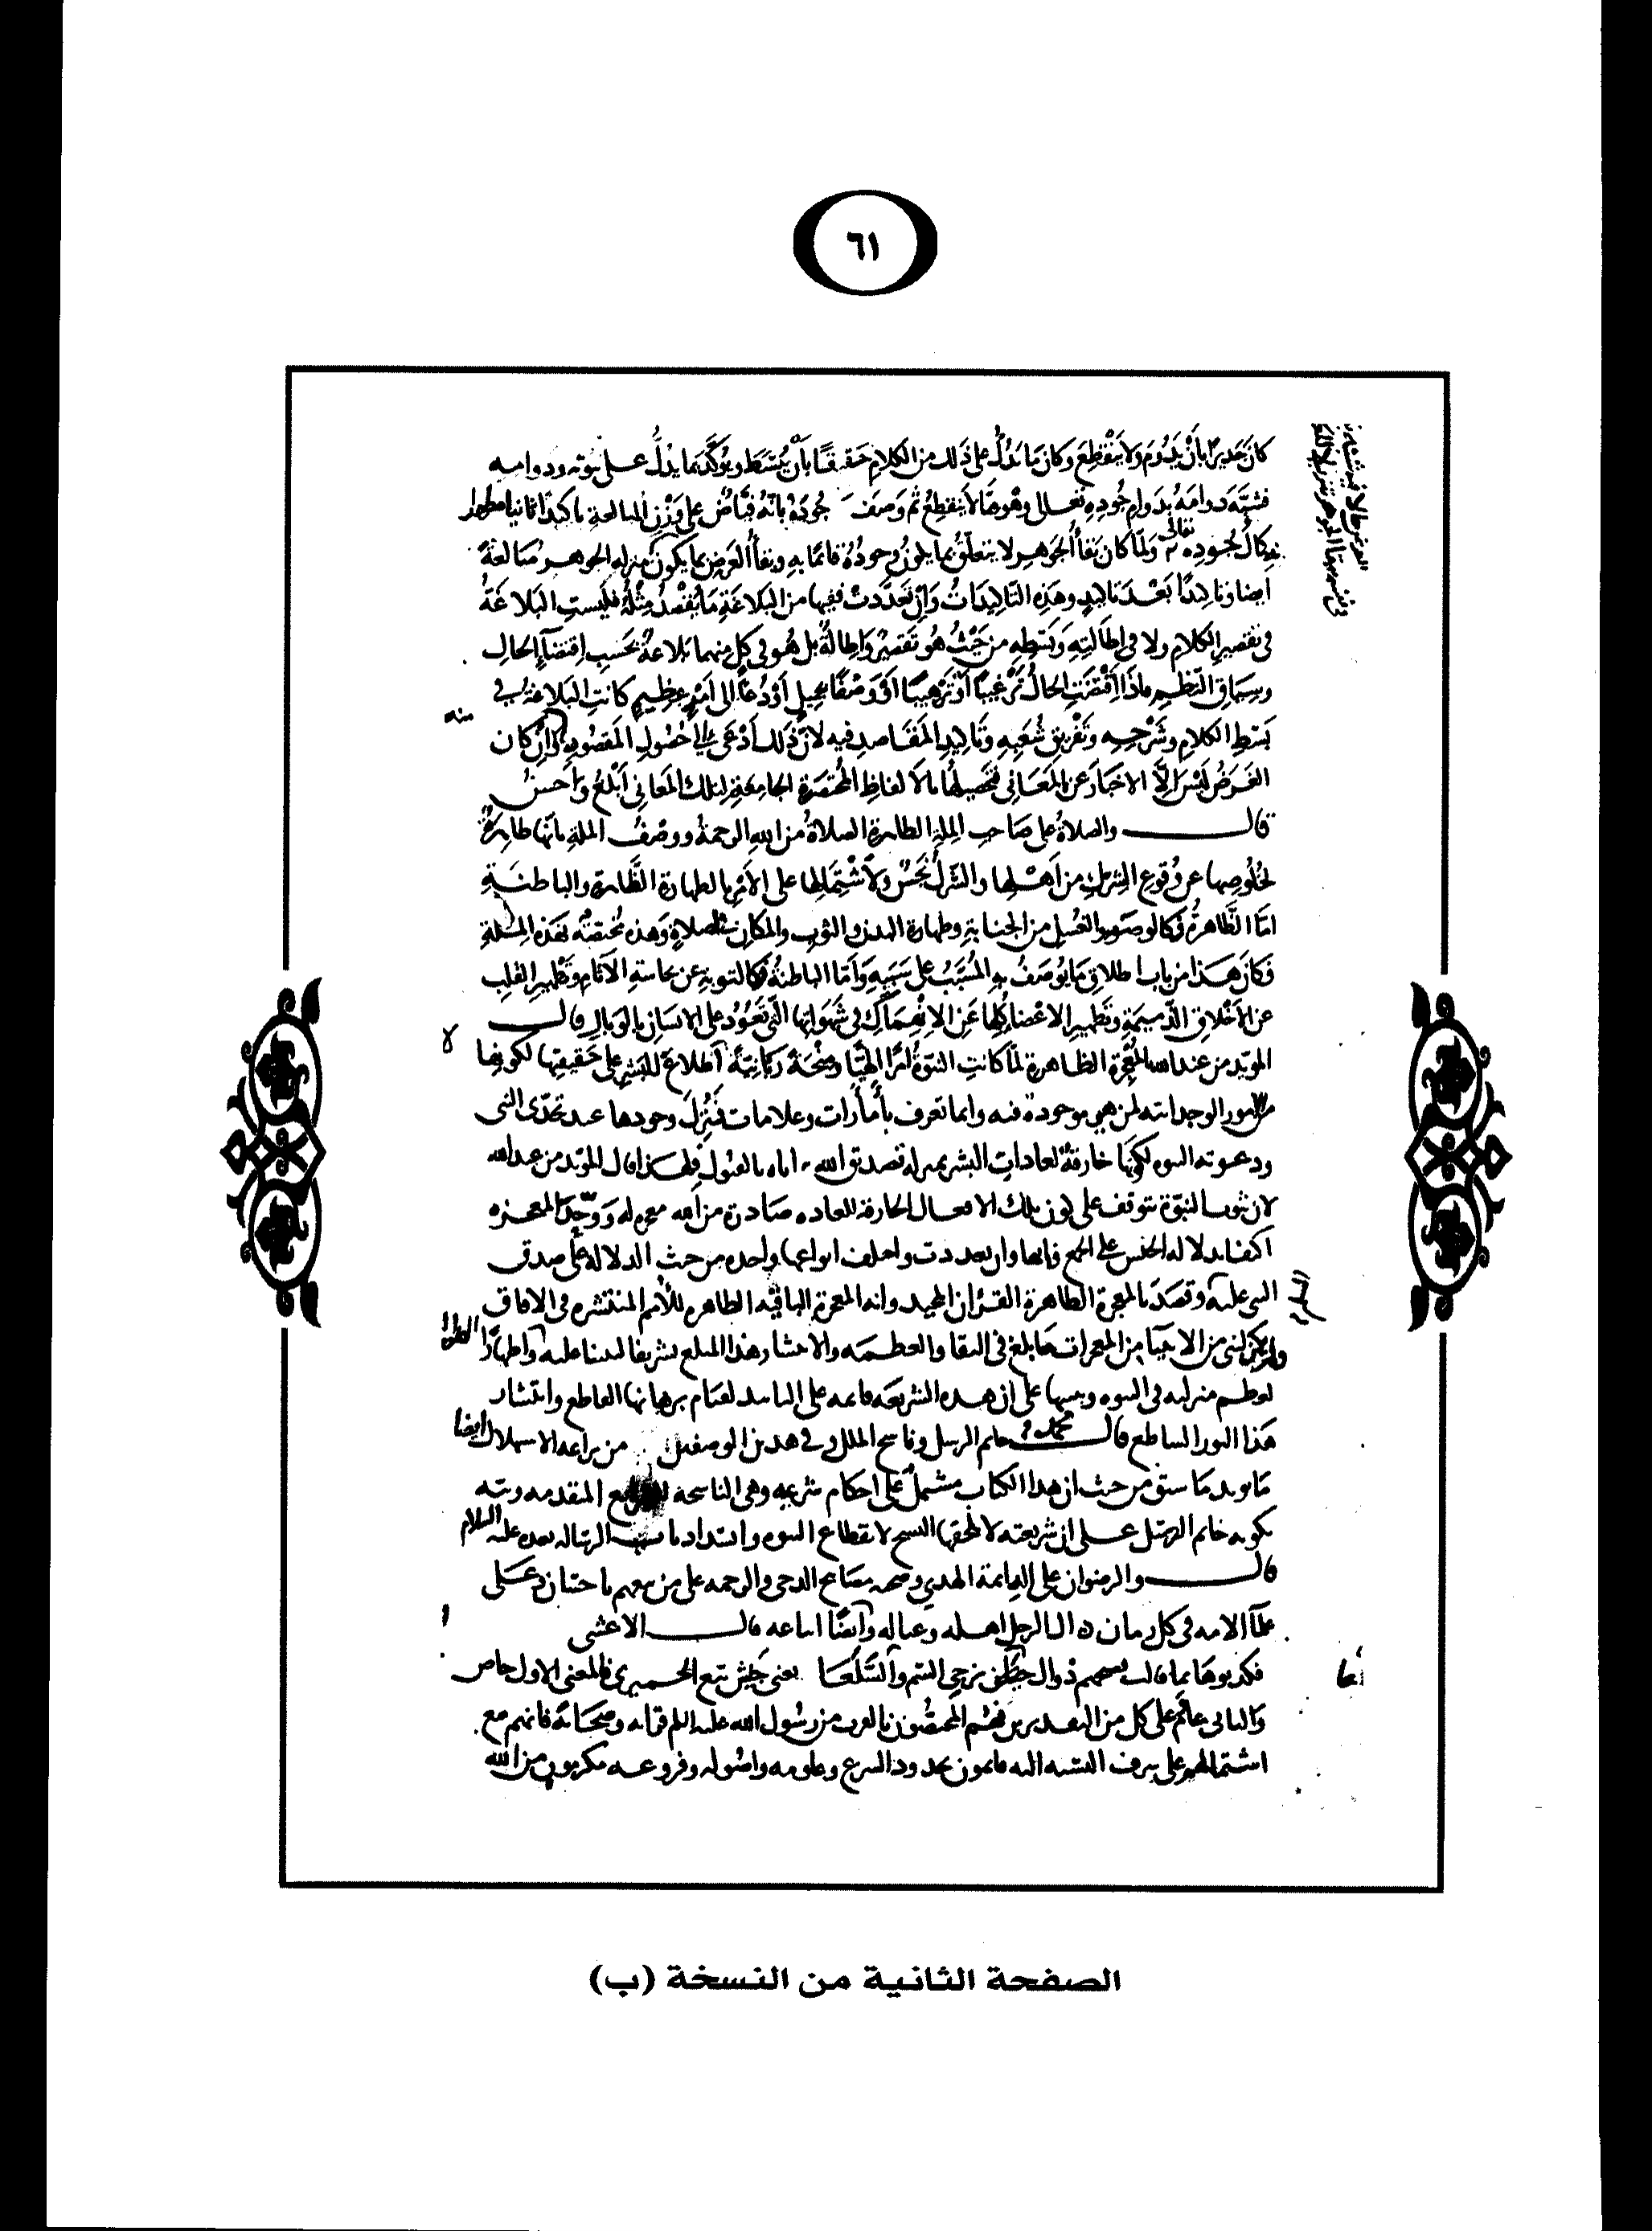 ٦١
كان جديرًا بأن يدوم ولا ينقطع وكان ما يدلُّ على ذلك من الكلام حقيقًا بأن يُبسَط ويؤكَّد بما يدلُّ على ثبوته ودوامه
فشبّه دوامه بدوام جُوده تعالى وهو مما لا ينقطع ثم وصف جُودَه بأنه فيّاض على وزن المبالغة تأكيدا ثانيا
لكمال جوده تعالى ولما كان بقاء الجوهر لا يتعلق بما يكون وجودُه قائمًا به وبقاء العرض بما يكون منزله الجوهر مبالغةً
ايضا وتاكيدًا بَعْدَ تاكيدٍ وهذه التاكيداتُ وَإن تعدَّدت ففيها من البلاغة ما يُقْصَدُ مِثْلُهُ فليستِ البلاغةُ
في تقصيرِ الكلامِ ولا في إطالتِهِ وبَسْطِهِ من حَيْثُ هو تَقصيرٌ وإطالةٌ بل هُو في كلٍ منهما بلاغةٌ بحَسَبِ اقتضاءِ الحالِ
وسياقِ النظمِ فاذا اقْتَضَتِ الحالُ تَرغيبًا أو تَرهيبًا أو وصفًا بجميلٍ أو دُعاءً الى أمْرٍ عظيمٍ كانتِ البلاغةُ في
بَسْطِ الكلامِ وشَرْحِهِ وتَفْريقِ شُعَبِهِ وتَاكيدِ المقاصدِ فيه لأنّ ذلك أدْعَى إلى حُصُولِ المقصُودِ وإن كان
الغَرَضُ لَيْسَ إلّا الاخبارَ عن المعَاني فتحصيلُها بالألفاظِ المُختصَرةِ الجامعةِ لتلك المعاني أبْلغُ وأحسنُ
قال والصلاةُ على صاحبِ الملةِ الطاهرة الصلاةُ من الله الرحمةُ ووصْفُ الملةِ بانها طاهرةٌ
لخُلُوصِها عن وُقوع الشركِ من أهْلها والشركُ نَجَسٌ ولاشتمالِها على الأمرِ بالطهارة الظاهرة والباطنةِ
امّا الظاهرةُ فكالوضوء والغسلِ من الجنابةِ وطهارة البدن والثوبِ والمكانِ للصلاةِ وهذه مُختصَّةٌ بهَذه المِلَّةِ
فكان هذا من بابِ إطلاقِ ما يُوصَفُ به المُسَبَّبُ على سَبَبِهِ وأمّا الباطنةُ فكالتوبةِ عن نجاسةِ الآثامِ وتطهيرِ القلبِ
عن الأخلاقِ الذميمةِ وتطهيرِ الاعضاءِ كلِّها عن الانهماكِ في شَهَواتِها التي تَعُودُ على الانسانِ بالوبالِ قال
المؤيد من عند الله بالمعجزة الظاهرة لمّا كانتِ النبوّةُ أمرًا إلهيًّا ومِنْحَةً ربّانيّةً لا اطلاعَ للبشرِ على حَقيقتِها لكونها
من الأمور الوجدانية لمن هي موجودة فيه وإنما تعرف بأمَارَات وعلامات وجودها عند تحدّي النبي
ودعوته النبوة لكونها خارقةً لعاداتِ البشر بمنزلة تصديق الله اياه بالقول فلهذا قال المؤيد من عند الله
لان ثبوت النبوّة تتوقف على كون تلك الافعال الخارقة للعادة صادرة من الله معجزة له ووحّد المعجزه
اكتفاء بدلالة الجنس على الجمع فانها وان تعددت واختلفت انواعها واحدة من حيث الدلالة على صدق
النبي عليه وقصد بالمعجزة الظاهرة القرآن المجيد وانه المعجزة الباقية الظاهرة للأمم المنتشرة في الافاق
ولم يكن لنبي من الانبياء من المعجزات ما بلغ في البقاء والعظمة والانتشار هذا المبلغ تشريفا لنبينا عليه واظهارًا
لعظم منزلته في النبوة وتنبيها على ان هذه الشريعة قائمة على التأبيد لقيام برهانها القاطع وانتشار
هذا النور الساطع قال محمد خاتم الرسل وناسخ الملل وفي هذين الوصفين من براعة الاستهلال ايضا
ما يويد ما سبق من حيث ان هذا الكتاب مشتمل على احكام شرعية وهي الناسخة المتقدمة ونبه
بكونه خاتم الرسل على ان شريعته لا يلحقها النسخ لانقطاع النبوة وانسداد باب الرسالة بعده عليه السلام
قال والرضوان على آله أئمة الهدى وصحبه مصابيح الدجى والرحمة على من تبعهم باحسان وعلى
علماء الامة في كل زمان آل الرجل اهله وعياله وايضًا اتباعه قال الاعشى
فكذبوها بما قالت فصبحهم ذوال حسّان يزجي السم والسَّلعا يعني جيش تبع الحميري فالمعنى الاول خاص
والثاني عام وعلى كل من التقديرين فهُم المخصّصون بالقرب من رسُول الله عليه السلم قرابة وصحابة فانهم مع
اشتمالهم على شرف النسبة اليه قائمون بحدود الشرع وعلومه واصُوله وفروعه مكرمون من الله
الصفحة الثانية من النسخة (ب)